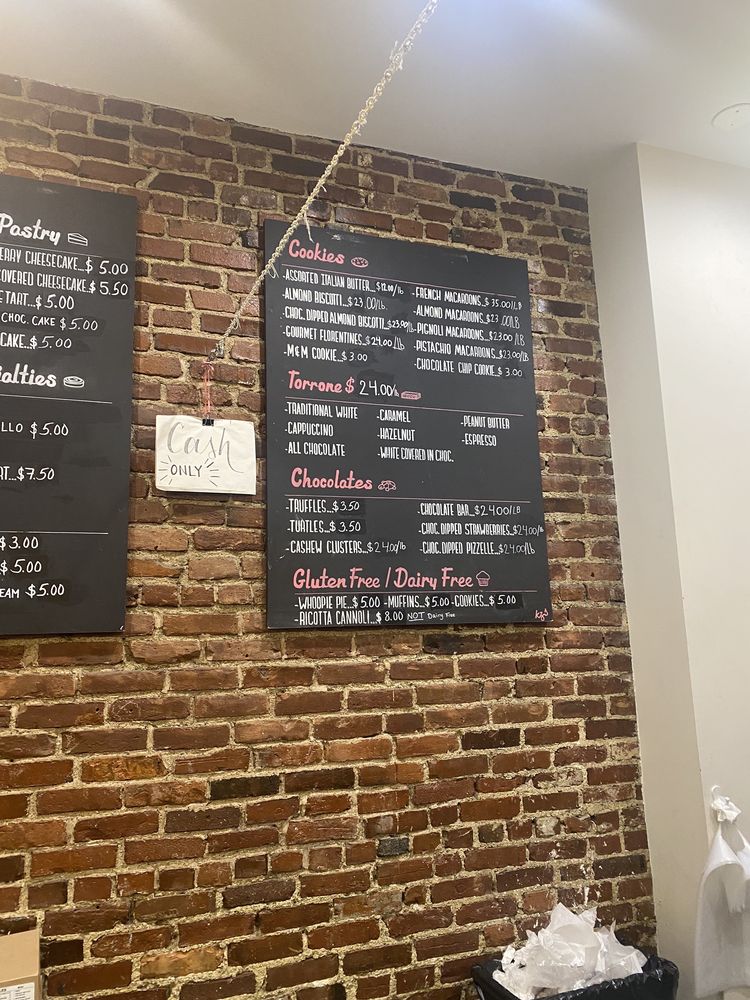 Pastry
ERRY CHEESECAKE...$ 5.00
OVERED CHEESECAKE.$ 5.50
TART...$ 5.00
CHOC. CAKE $ 5.00
CAKE...$ 5.00
alties
LLO $5.00
RT...$7.50
$3.00
$5.00
EAM $5.00
Cash
ONLY
Cookies
-ASSORTED ITALIAN BUTTER...$12.00/lb
-ALMOND BISCOTTI...$23.00/lb.
-CHOC. DIPPED ALMOND BISCOTTI.$23.00/lb.
-GOURMET FLORENTINES...$24.00/lb
-M&M COOKIE...$ 3.00
-FRENCH MACAROONS...$ 35.00/LB
-ALMOND MACAROONS...$23.00/LB
-PIGNOLI MACAROONS...$23.00/LB
-PISTACHIO MACAROONS.$23.00/LB
-CHOCOLATE CHIP COOKIE.$ 3.00
Torrone $ 24.00/lb
-TRADITIONAL WHITE
-CAPPUCCINO
-ALL CHOCOLATE
-CARAMEL
-HAZELNUT
-WHITE COVERED IN CHOC.
-PEANUT BUTTER
-ESPRESSO
Chocolates
-TRUFFLES...$3.50
-TURTLES...$ 3.50
-CASHEW CLUSTERS...$24.00/lb
-CHOCOLATE BAR...$24.00/LB
-CHOC. DIPPED STRAWBERRIES..$24.00/lb
-CHOC. DIPPED PIZZELLE...$24.00/lb
Gluten Free / Dairy Free
-WHOOPIE PIE..$ 5.00 -MUFFINS...$ 5.00 -COOKIES...$ 5.00
-RICOTTA CANNOLI...$ 8.00 NOT Dairy Free